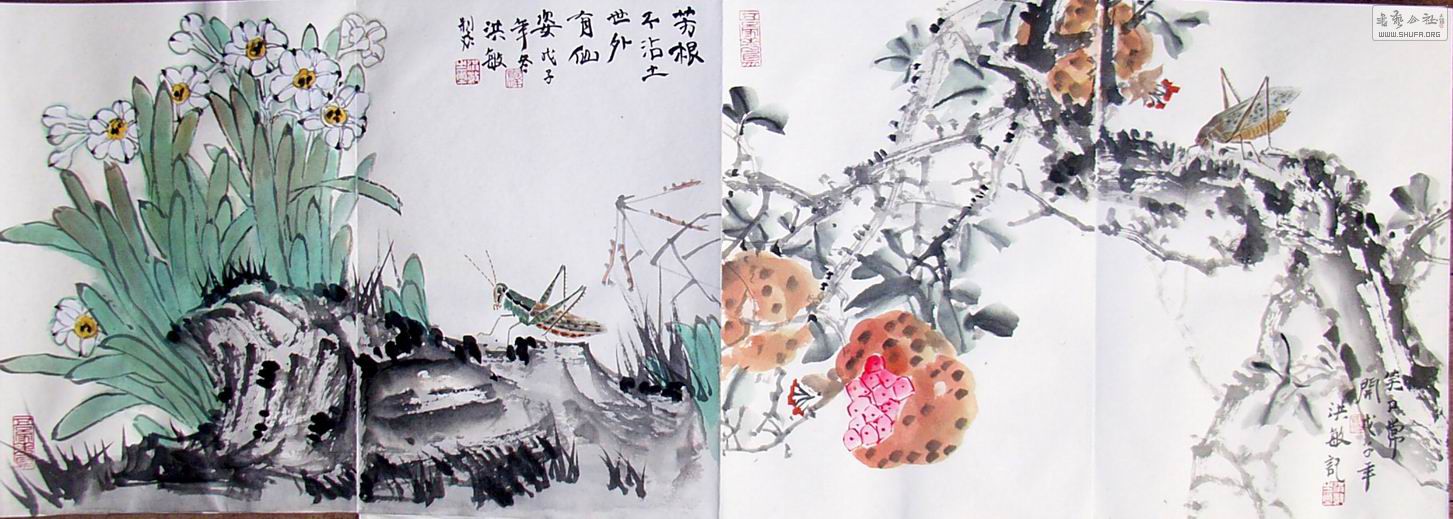 芳根
不沾土
世外
有仙
姿戊子
年冬
洪敏
笑口常
開戊子年
洪敏記
書藝公社
WWW.SHUFA.ORG